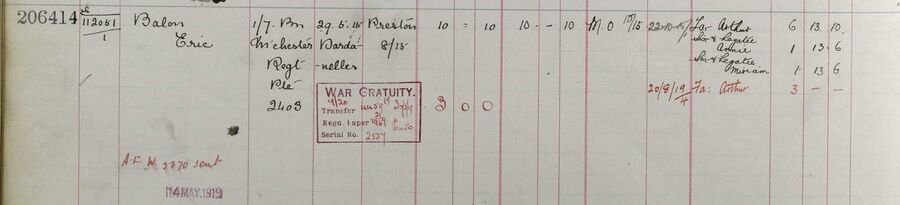 206414 112051 Balon 1/7. Bn 29.5.15 Preston 10 = 10 10 - - 10 M.O 10/15 22-10-15 Fa. Arthur 6 13 10.
1 Eric Mchester Darda- 8/15 Sis & Legatee
Annie 1 13 6
Regt nelles Sis & Legatee
Miriam 1 13 6
Pte 20/8/19 Fa: Arthur 3 - -
2403 WAR GRATUITY. 3 0 0
Transfer
Regd. Paper
Serial No. 2557
A.F.W 5070 sent
14 MAY 1919